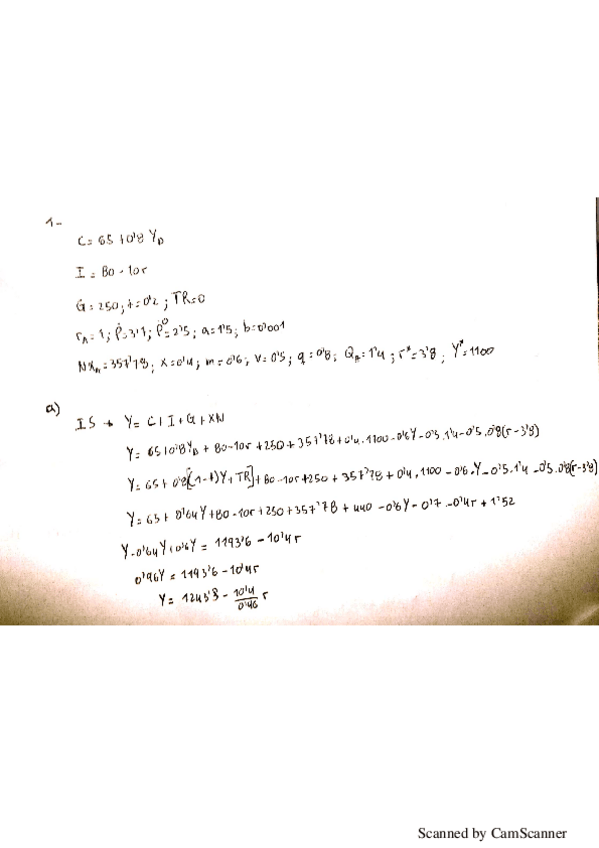 1-
C = 65 + 0'8 Y_D
I = 80 - 10r
G = 250 ; t = 0'2 ; TR = 0
r_A = 1 ; Ṗ = 3'1 ; Ṗ^0 = 2'5 ; a = 1'5 ; b = 0'001
NX_A = 357'78 ; x = 0'4 ; m = 0'6 ; v = 0'5 ; q = 0'8 ; Q_A = 1'4 ; r* = 3'8 ; Y* = 1100
a)
IS → Y = C + I + G + XN
Y = 65 + 0'8 Y_D + 80 - 10r + 250 + 357'78 + 0'4 . 1100 - 0'6Y - 0'5 . 1'4 - 0'5 . 0'8 (r - 3'8)
Y = 65 + 0'8 [(1-t)Y + TR] + 80 - 10r + 250 + 357'78 + 0'4 . 1100 - 0'6 . Y - 0'5 . 1'4 - 0'5 . 0'8 (r - 3'8)
Y = 65 + 0'64Y + 80 - 10r + 250 + 357'78 + 440 - 0'6Y - 0'7 - 0'4r + 1'52
Y - 0'64Y + 0'6Y = 1193'6 - 10'4r
0'96Y = 1193'6 - 10'4r
Y = 1243'3 - 10'4/0'96 r
Scanned by CamScanner